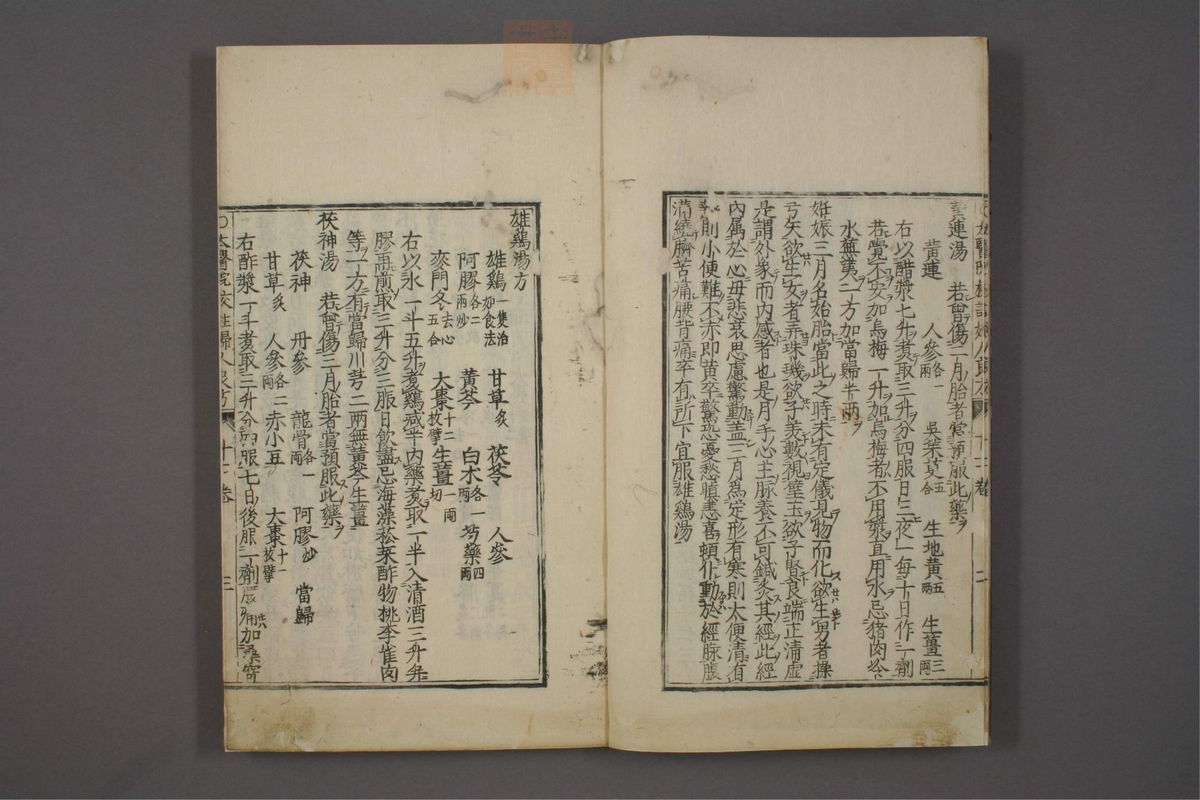 黄連湯 若曾傷二月胎者當預服此藥
黄連 人參各一兩 吳茱萸五合 生地黄五兩 生薑三兩
右以醋漿七升煮取三升分四服日三夜一每十日作一劑
若覺不安加烏梅一升加烏梅者不用漿直用水忌猪肉冷
水蕪荑一方加當歸半兩
姙娠三月名始胎當此之時未有定儀見物而化欲生男者操
弓矢欲生女者弄珠璣欲子美數視璧玉欲子賢良端正清虛
是謂外象而内感者也是月手心主脉養不可鍼灸其經此經
内属於心毋悲哀思慮驚動盖三月爲定形有寒則大便清有
熱則小便難不赤即黄卒驚恐憂愁瞋恚喜頓仆動於經脉腹
滿繞臍苦痛腰背痛卒有所下宜服雄鷄湯
雄鷄湯方
雄鷄一隻治如食法 甘草炙 茯苓 人參
阿膠各二兩炒 黄芩 白术各一兩 芍藥四兩
麥門冬去心五合 大棗十二枚擘 生薑一兩切
右以水一斗五升煮鷄减半内藥煮取一半入清酒三升并
膠再煎取三升分三服日飲盡忌海藻菘菜酢物桃李雀肉
等一方有當歸川芎二兩無黄芩生薑
茯神湯 若曾傷三月胎者當預服此藥
茯神 丹參 龍骨各一兩 阿膠炒 當歸
甘草炙 人參各二兩 赤小豆 大棗十一枚擘
右酢漿一斗煮取三升分四服七日後服一劑腰痛加桑寄
太醫院校註婦人良方 十二卷 三